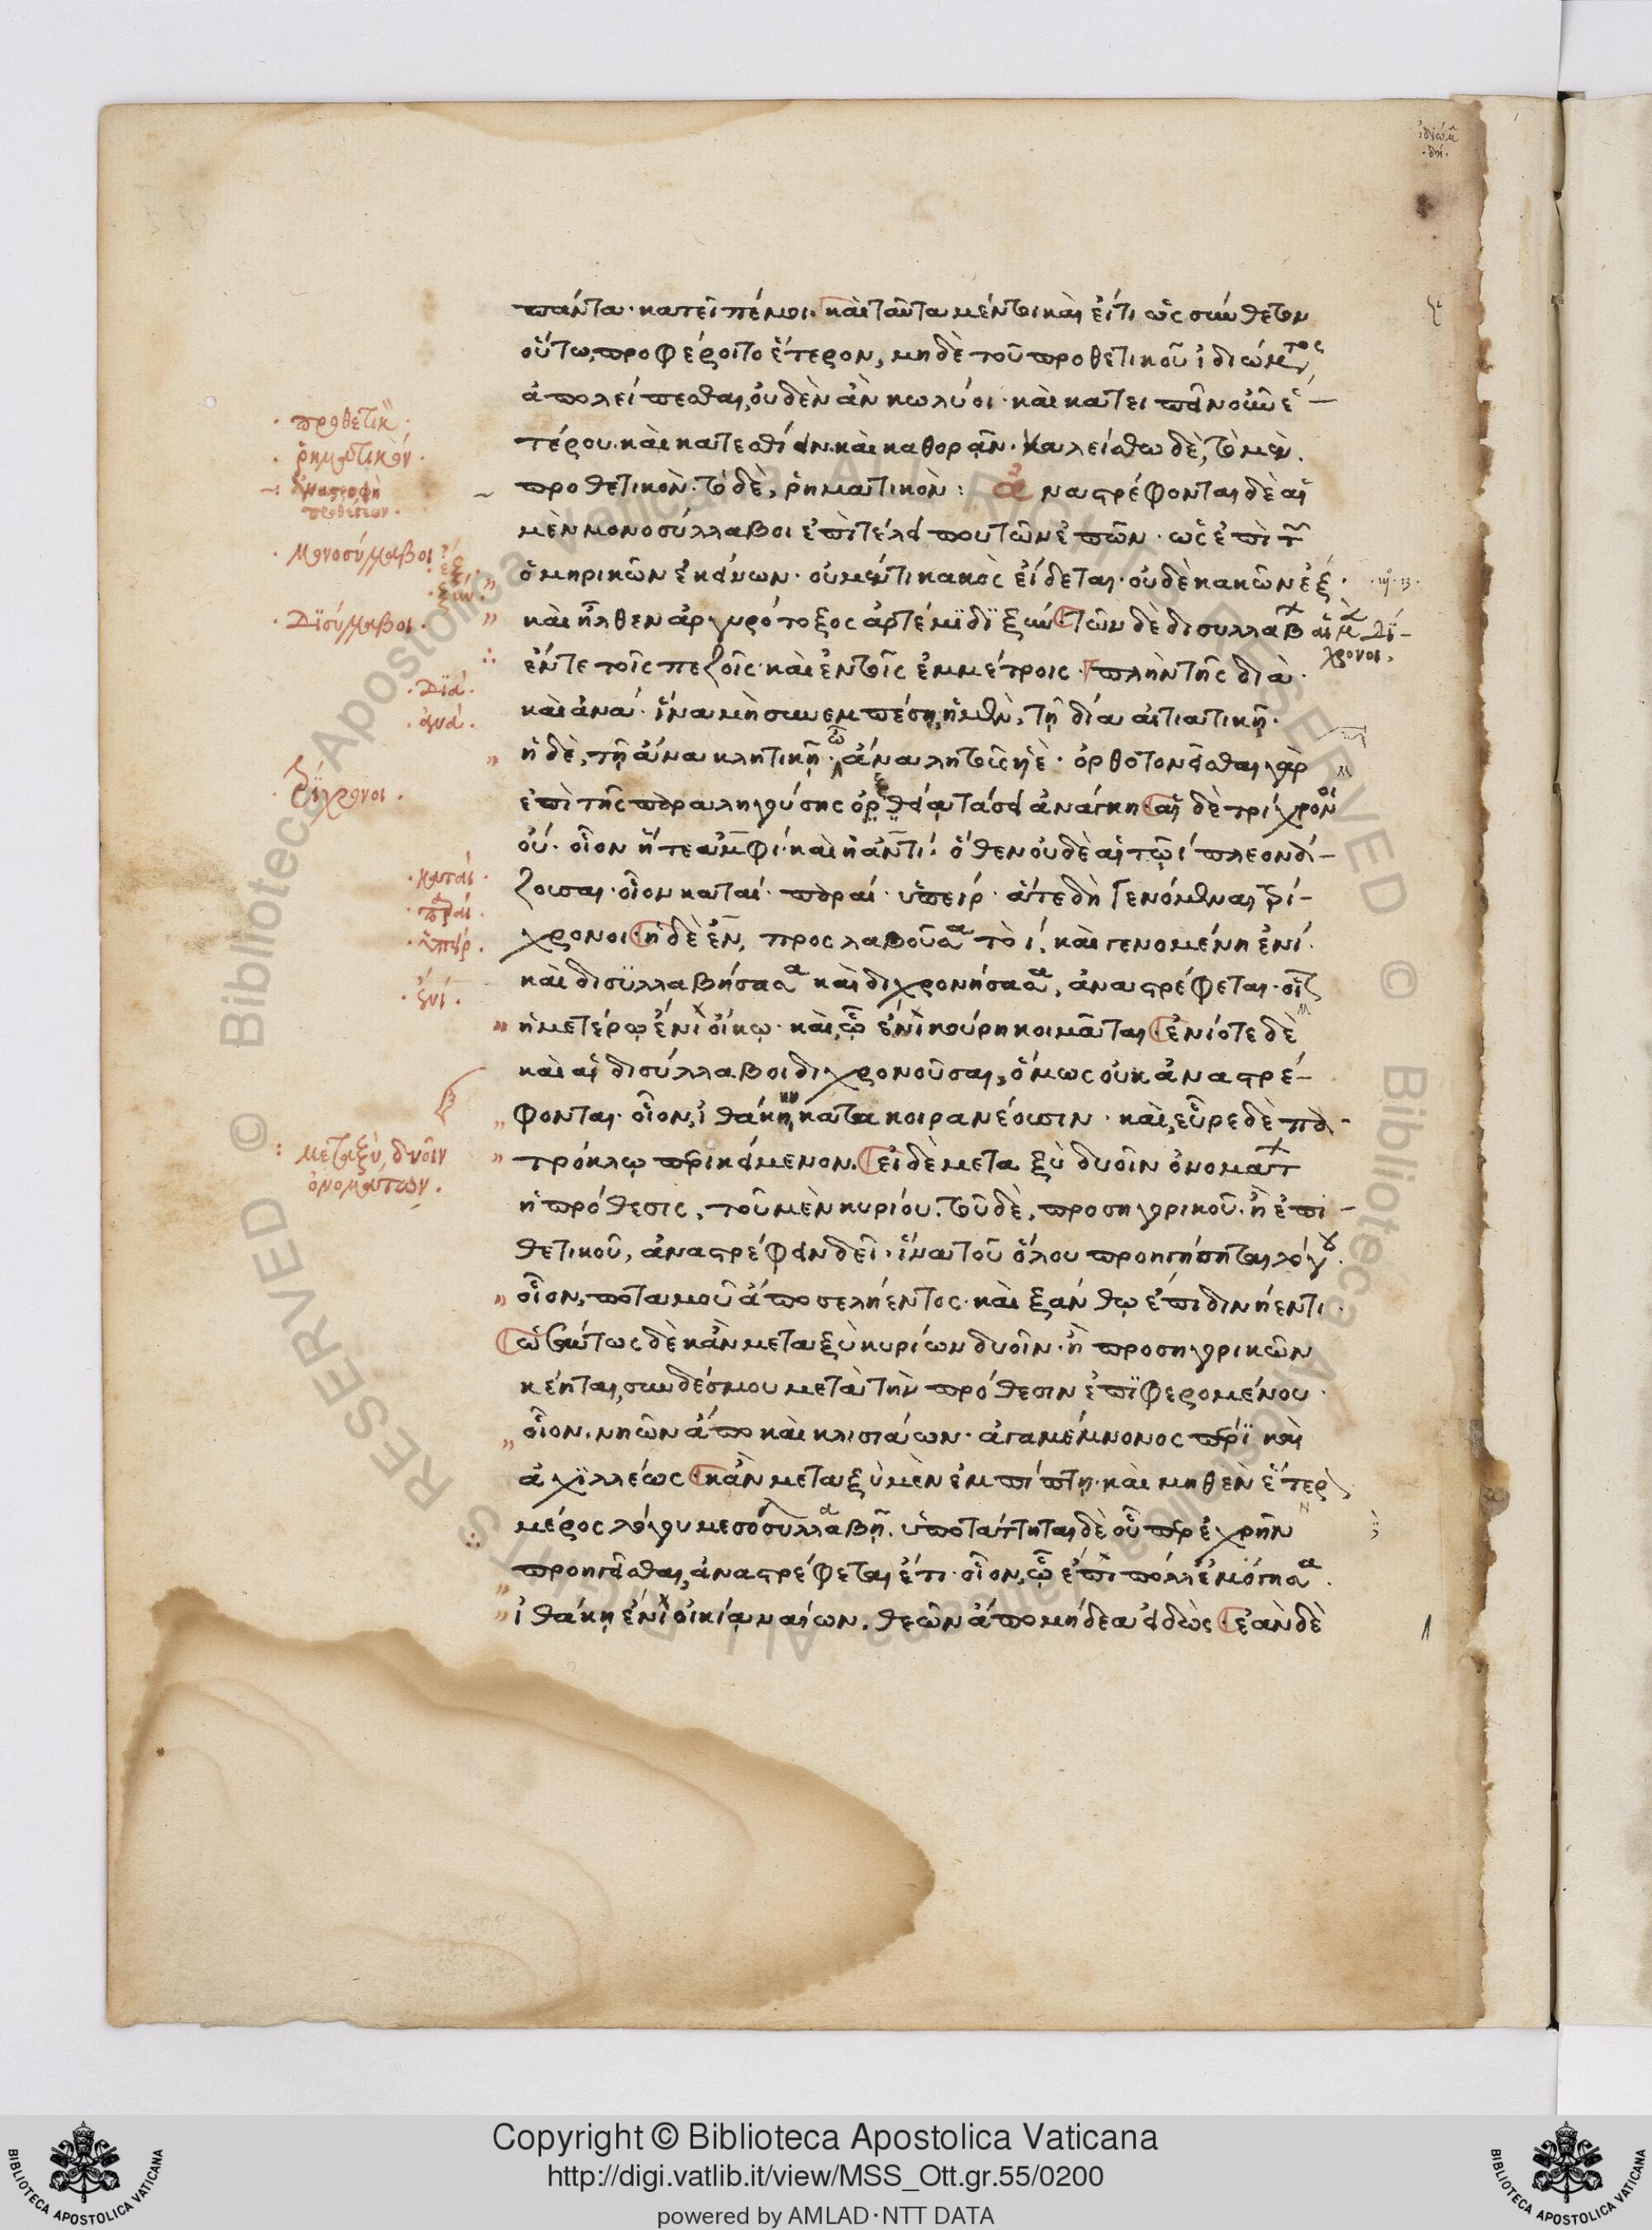 πάντα· κατεῖπέ μοι. καὶ ταῦτα μέντοι καὶ εἴ τι ὡς σύνθετον
οὕτω, προφέροιτο ἕτερον, μηδὲ τοῦ προθετικοῦ ἰδιώματος
ἀπολείπεσθαι, οὐδὲν ἂν κωλύοι· καὶ κατειπεῖν οὖν ἑ–
τέρου. καὶ κατεσθίειν. καὶ καθορᾶν. καλείσθω δὲ, τὸ μὲν.
προθετικὸν. τὸ δὲ, ῥηματικὸν: ἀναστρέφονται δὲ αἱ
μὲν μονοσύλλαβοι ἐπὶ τέλει που τῶν ἐπῶν. ὡς ἐπὶ τῶν
ὁμηρικῶν ἐκείνων. οὐ μέν τι κακὸς εἴδεται. οὐδὲ κακῶν ἐξ.
καὶ ἦλθεν ἀργυρότοξος ἀρτέμϊδϊ ξύν τῶν δὲ δισυλλάβων αἱ μὲν δΐ–
χρονοι.
ἔν τε τοῖς πεζοῖς· καὶ ἐν τοῖς ἐμμέτροις. πλὴν τῆς διὰ.
καὶ ἀνα. ἵνα μὴ συνεμπέσῃ, ἡ μὲν, τῇ δία αἰτιατικῇ.
ἡ δὲ, τῇ ἄνα κλητικῇ. ὦ ἄνα λητοῖς ηϊέ. ὀρθοτονεῖσθαι γὰρ
ἐπὶ τῆς παραληγούσης
ἀνάγκη αἱ δὲ τρίχρονοι
οὐ. οἷον ἥ τε ἀμφί. καὶ ἡ ἀντί. ὅθεν οὐδὲ αἱ τῷ ί πλεονά–
ζουσαι. οἷον καταί. παραί. ὑπείρ. ἅτε δὴ γενόμεναι τρί–
χρονοι. ἡ δὲ ἐν, προσλαβοῦσα τὸ ί. καὶ γενομένη ἐνί.
καὶ δισϋλλαβήσασα καὶ διχρονήσασα, ἀναστρέφεται. οἷον
ἡμετέρῳ ἐνὶ οἴκῳ. καὶ, ᾧ ἔνι κούρη κοιμᾶται ἐνίοτε δὲ
καὶ αἱ δισύλλαβοι διχρονοῦσαι, ὅμως οὐκ ἀναστρέ–
φονται. οἷον, ἰθάκην κάτα κοιρανέουσιν. καὶ, εὗρε δὲ πα–
τρόκλῳ περικείμενον. εἰ δὲ μεταξὺ δυοῖν ὀνομάτων
ἡ πρόθεσις, τοῦ μὲν κυρίου. τοῦ δὲ, προσηγορικοῦ. ἢ ἐπι–
θετικοῦ, ἀναστρέφειν δεῖ. ἵνα τοῦ ὅλου προηγήσηται λόγου.
οἷον, ποταμοῦ ἄπο σελήεντος. καὶ ξάνθῳ ἔπι δινήεντι.
ὡσαύτως δὲ κἂν μεταξὺ κυρίων δυοῖν. ἢ προσηγορικῶν
κέηται, συνδέσμου μετὰ τὴν πρόθεσιν ἐπϊφερομένου.
οἷον. νηῶν ἄπο καὶ κλισιάων. ἀγαμέμνονος πέρϊ καὶ
ἀχϊλλέως κἂν μεταξὺ μὲν ἐμπίπτῃ. καὶ μηθὲν ἕτερον
μέρος λόγου μεσοσυλλαβῇ. ὑποτάττηται δὲ οὗπερ ἐχρῆν
προηγεῖσθαι, ἀναστρέφεται ἔτι. οἷον, ᾧ ἔπι πόλλ' ἐμόγησα.
ἰθάκῃ ἔνι οἰκία ναίων. θεῶν ἄπο μήδεα εἰδὼς ἐὰν δὲ
ῥηματικόν.
ἀναστροφὴ
προθέσεων.
Μονοσύλλαβοι
ἐξ.
ξύν.
Δϊσύλλαβοι.
Δϊά.
ἀνά.
καταί.
παραί.
ὑπείρ.
ἐνί.
μεταξὺ δυοῖν
ὀνομάτων.
Copyright © Biblioteca Apostolica Vaticana
http://digi.vatlib.it/view/MSS_Ott.gr.55/0200
powered by AMLAD·NTT DATA
BIBLIOTECA APOSTOLICA VATICANA
BIBLIOTECA APOSTOLICA VATICANA